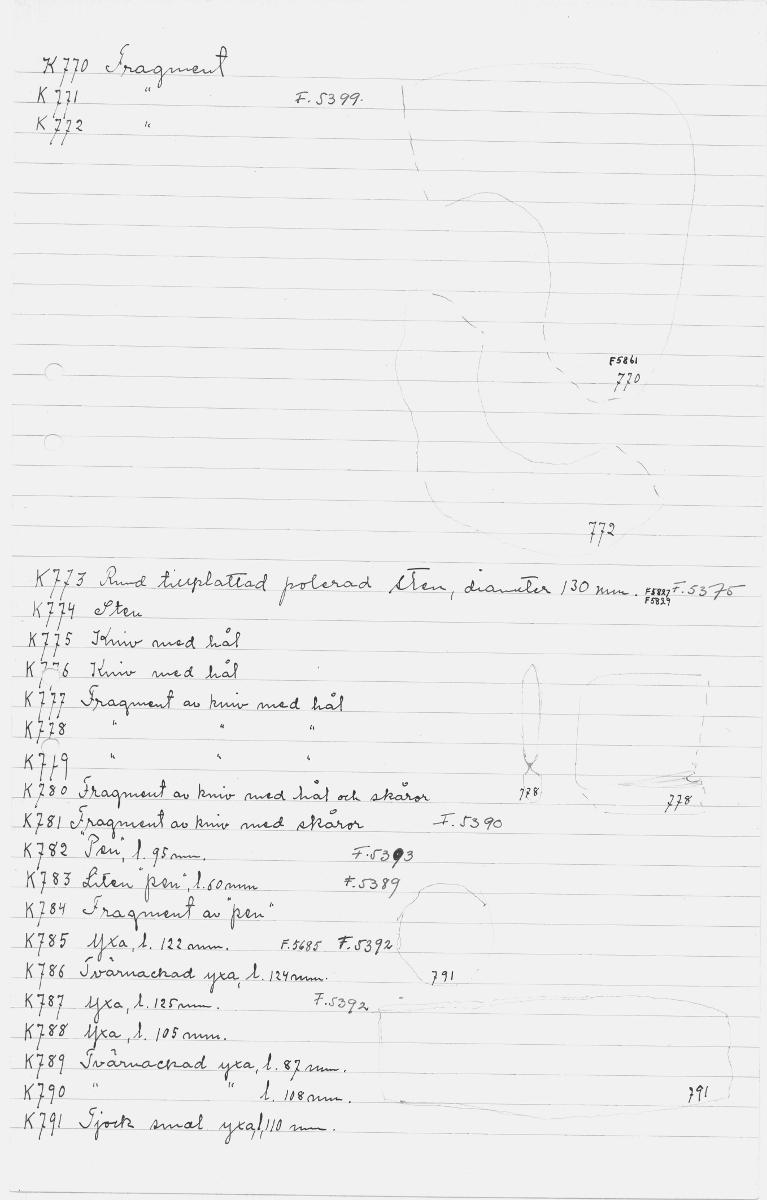 K770 Fragment
K771 " F.5399.
K772 "
F5861
770
772
K773 Rund tillplattad polerad sten, diameter 130 mm. F5827 F5829 F.5375
K774 Sten
K775 Kniv med hål
K776 Kniv med hål
K777 Fragment av kniv med hål
K778 " " "
K779 " " "
K780 Fragment av kniv med hål och skåror
778 778
K781 Fragment av kniv med skåror F.5390
K782 "Pen", l. 95 mm. F.5393
K783 Liten "pen", l. 60 mm F.5389
K784 Fragment av "pen"
K785 Yxa, l. 122 mm. F.5685 F.5392
K786 Tvärnackad yxa, l. 124 mm. 791
K787 Yxa, l. 125 mm. F.5392
K788 Yxa, l. 105 mm.
K789 Tvärnackad yxa, l. 87 mm.
K790 " " l. 108 mm. 791
K791 Tjock smal yxa, l, 110 mm.